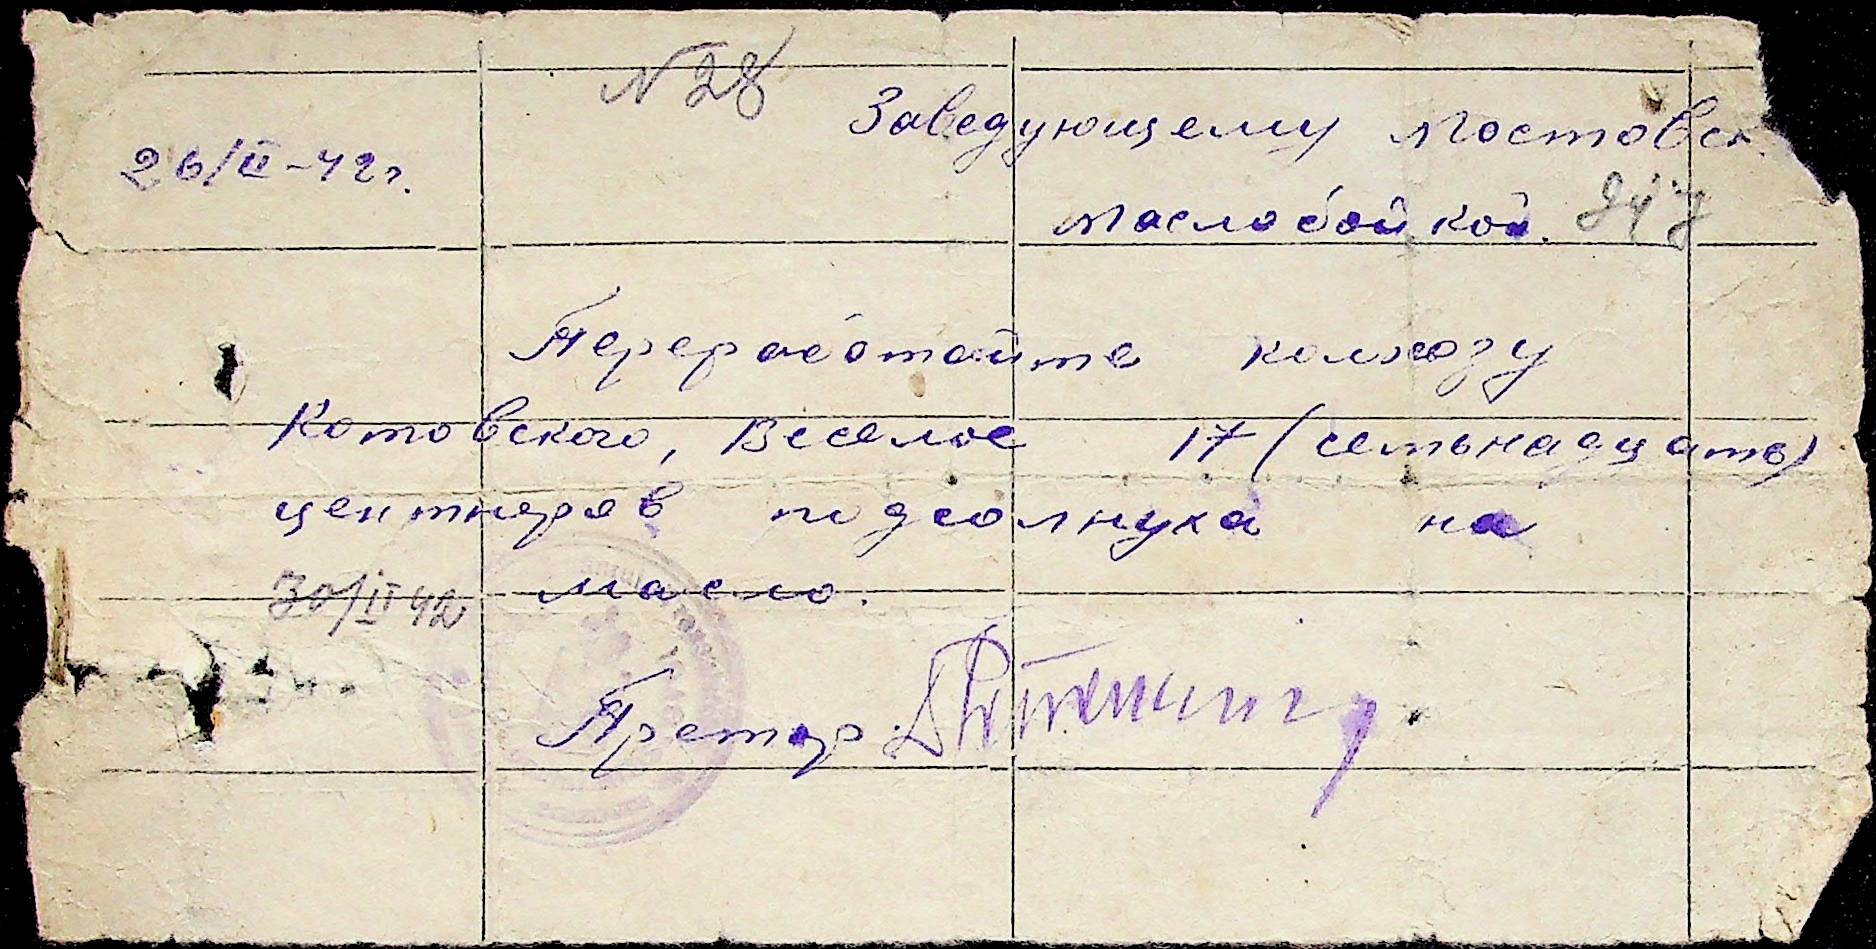 N 28
Заведующему Мостовск.
26/II-42г.
маслобойкой. 947
Переработайте колхозу
Котовского, Веселое 17 (семьнадцать)
центнеров подсолнуха на
масло.
30/II 42
Претор